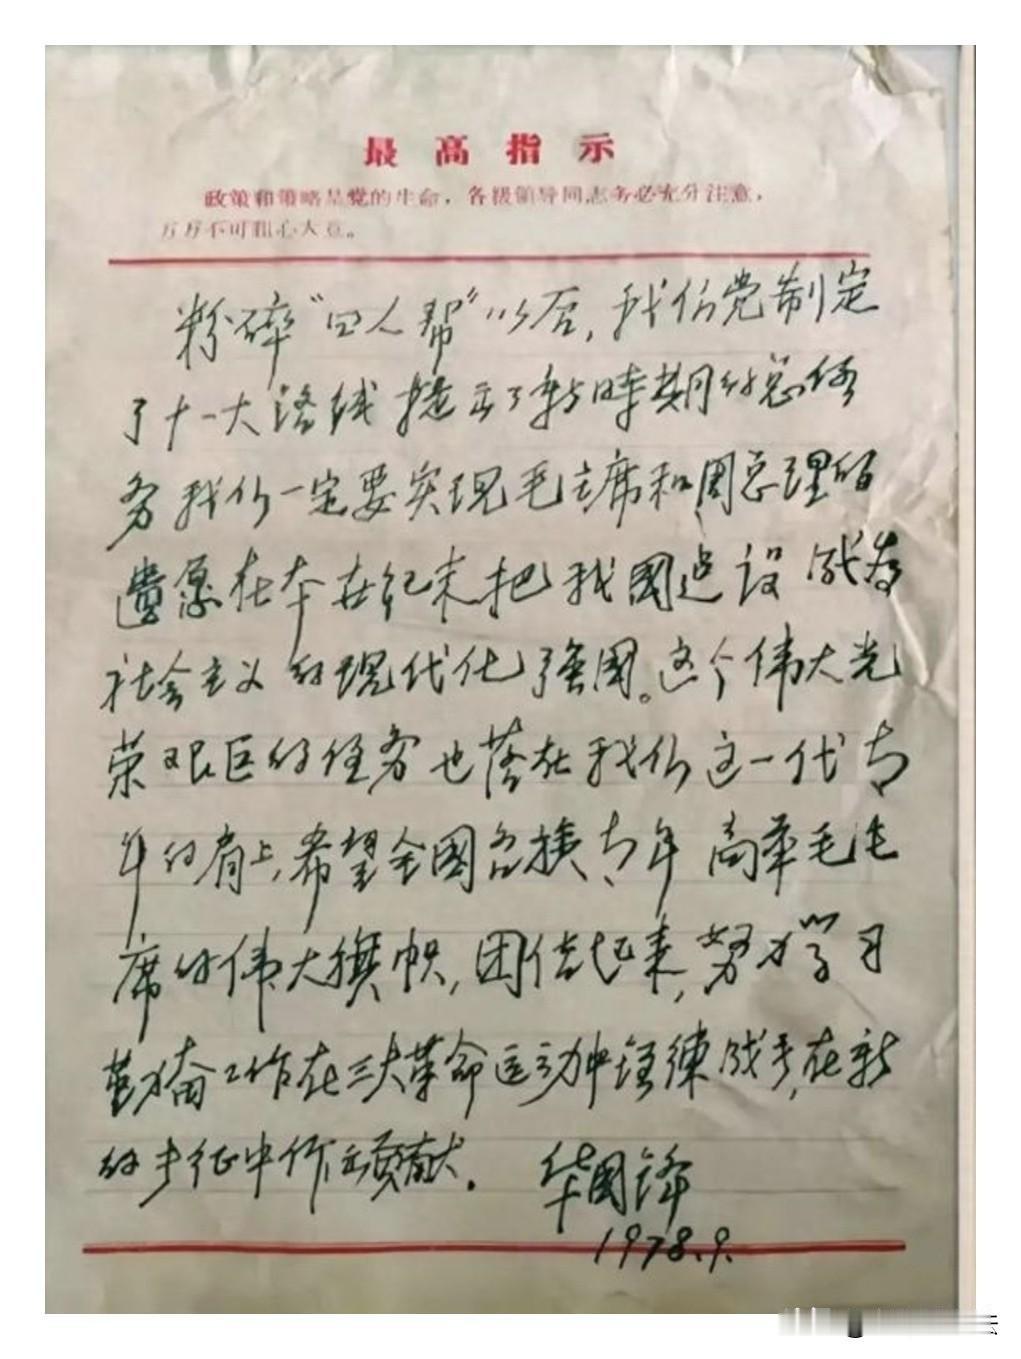 最高指示
政策和策略是党的生命，各级领导同志务必充分注意，
万万不可粗心大意。
粉碎“四人帮”以后，我们党制定
了十一大路线提出了新時期的总任
务我们一定要实现毛主席和周总理的
遗愿在本世纪末把我國建设成为
社会主义的现代化强國。这个伟大光
荣艰巨的任务也落在我们这一代青
年的肩上，希望全國各族青年高举毛主
席的伟大旗帜，团结起来，努力学习
勤奋工作在三大革命运动中锻練成长，在新
的长征中作出贡献。 华國锋
1978.9.